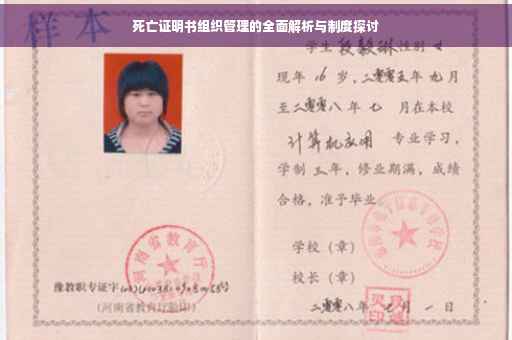 死亡证明书组织管理的全面解析与制度探讨
样本
学生段毅琳性别女
现年 16 岁，二零零五年九月
至二零零八年七 月在本校
计算机应用 专业学习，
学制三年，修业期满，成绩
合格，准予毕业
学校（章）
校长（章）
二零零八年七月一日
豫教职专证字
（河南省教育厅验印）
河南省教育厅